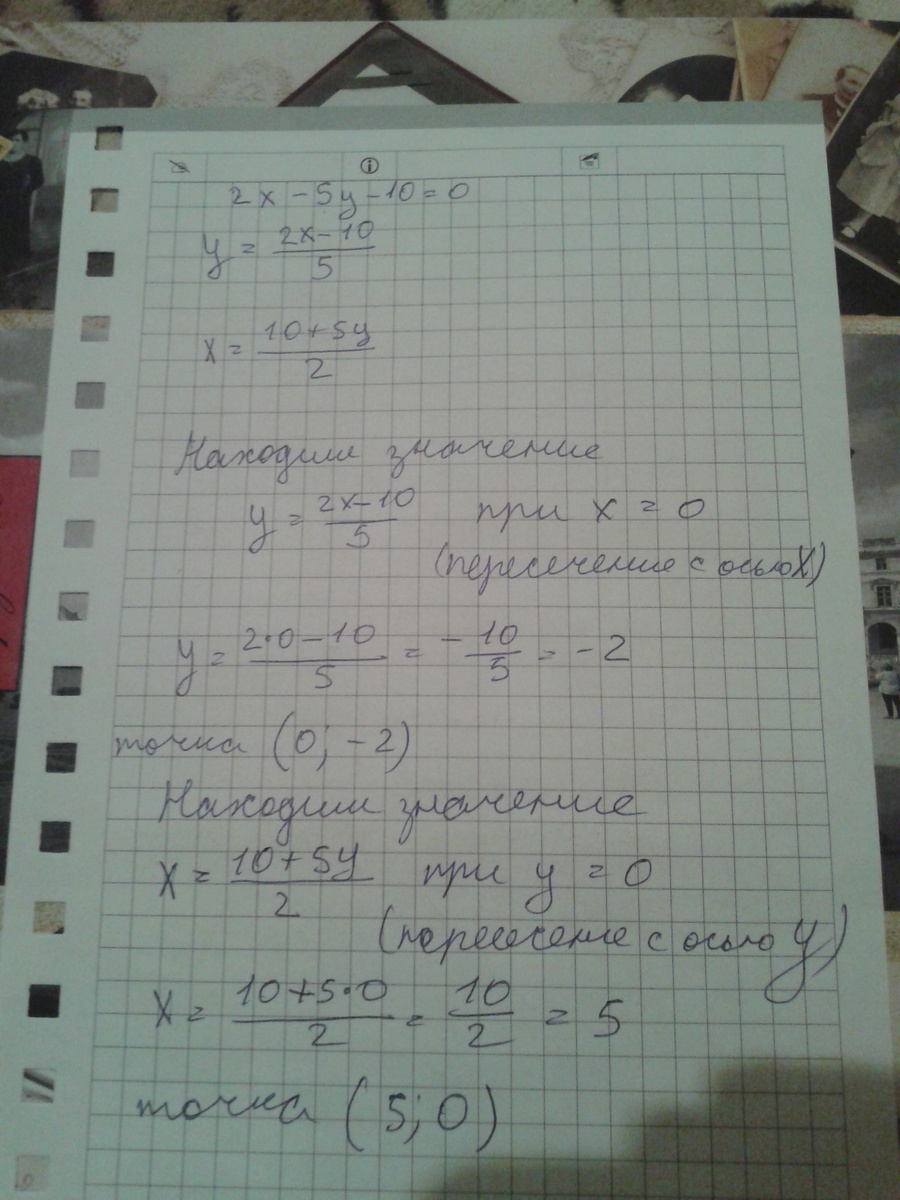 2x - 5y - 10 = 0
y = \frac{2x-10}{5}
x = \frac{10+5y}{2}
Находим значение
y = \frac{2x-10}{5} при x = 0
(пересечение с осью X)
y = \frac{2·0-10}{5} = -\frac{10}{5} = -2
точка (0; -2)
Находим значение
x = \frac{10+5y}{2} при y = 0
(пересечение с осью y)
x = \frac{10+5·0}{2} = \frac{10}{2} = 5
точка (5; 0)